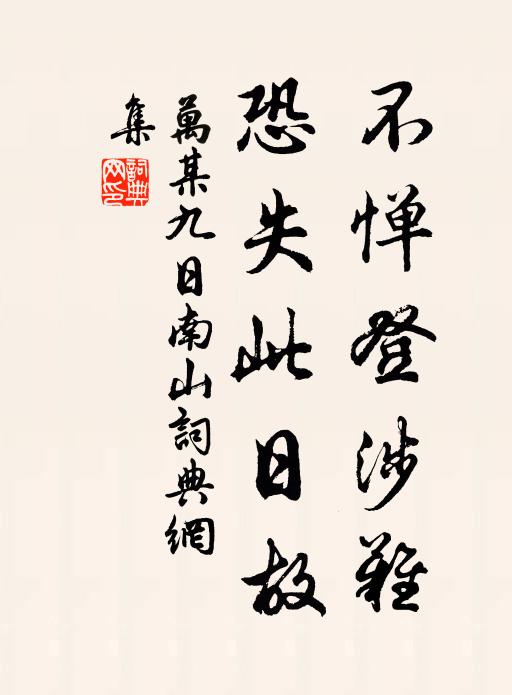 不惮登涉難
恐失此日故
萬某九日南山詞典網
集
詞典
网印